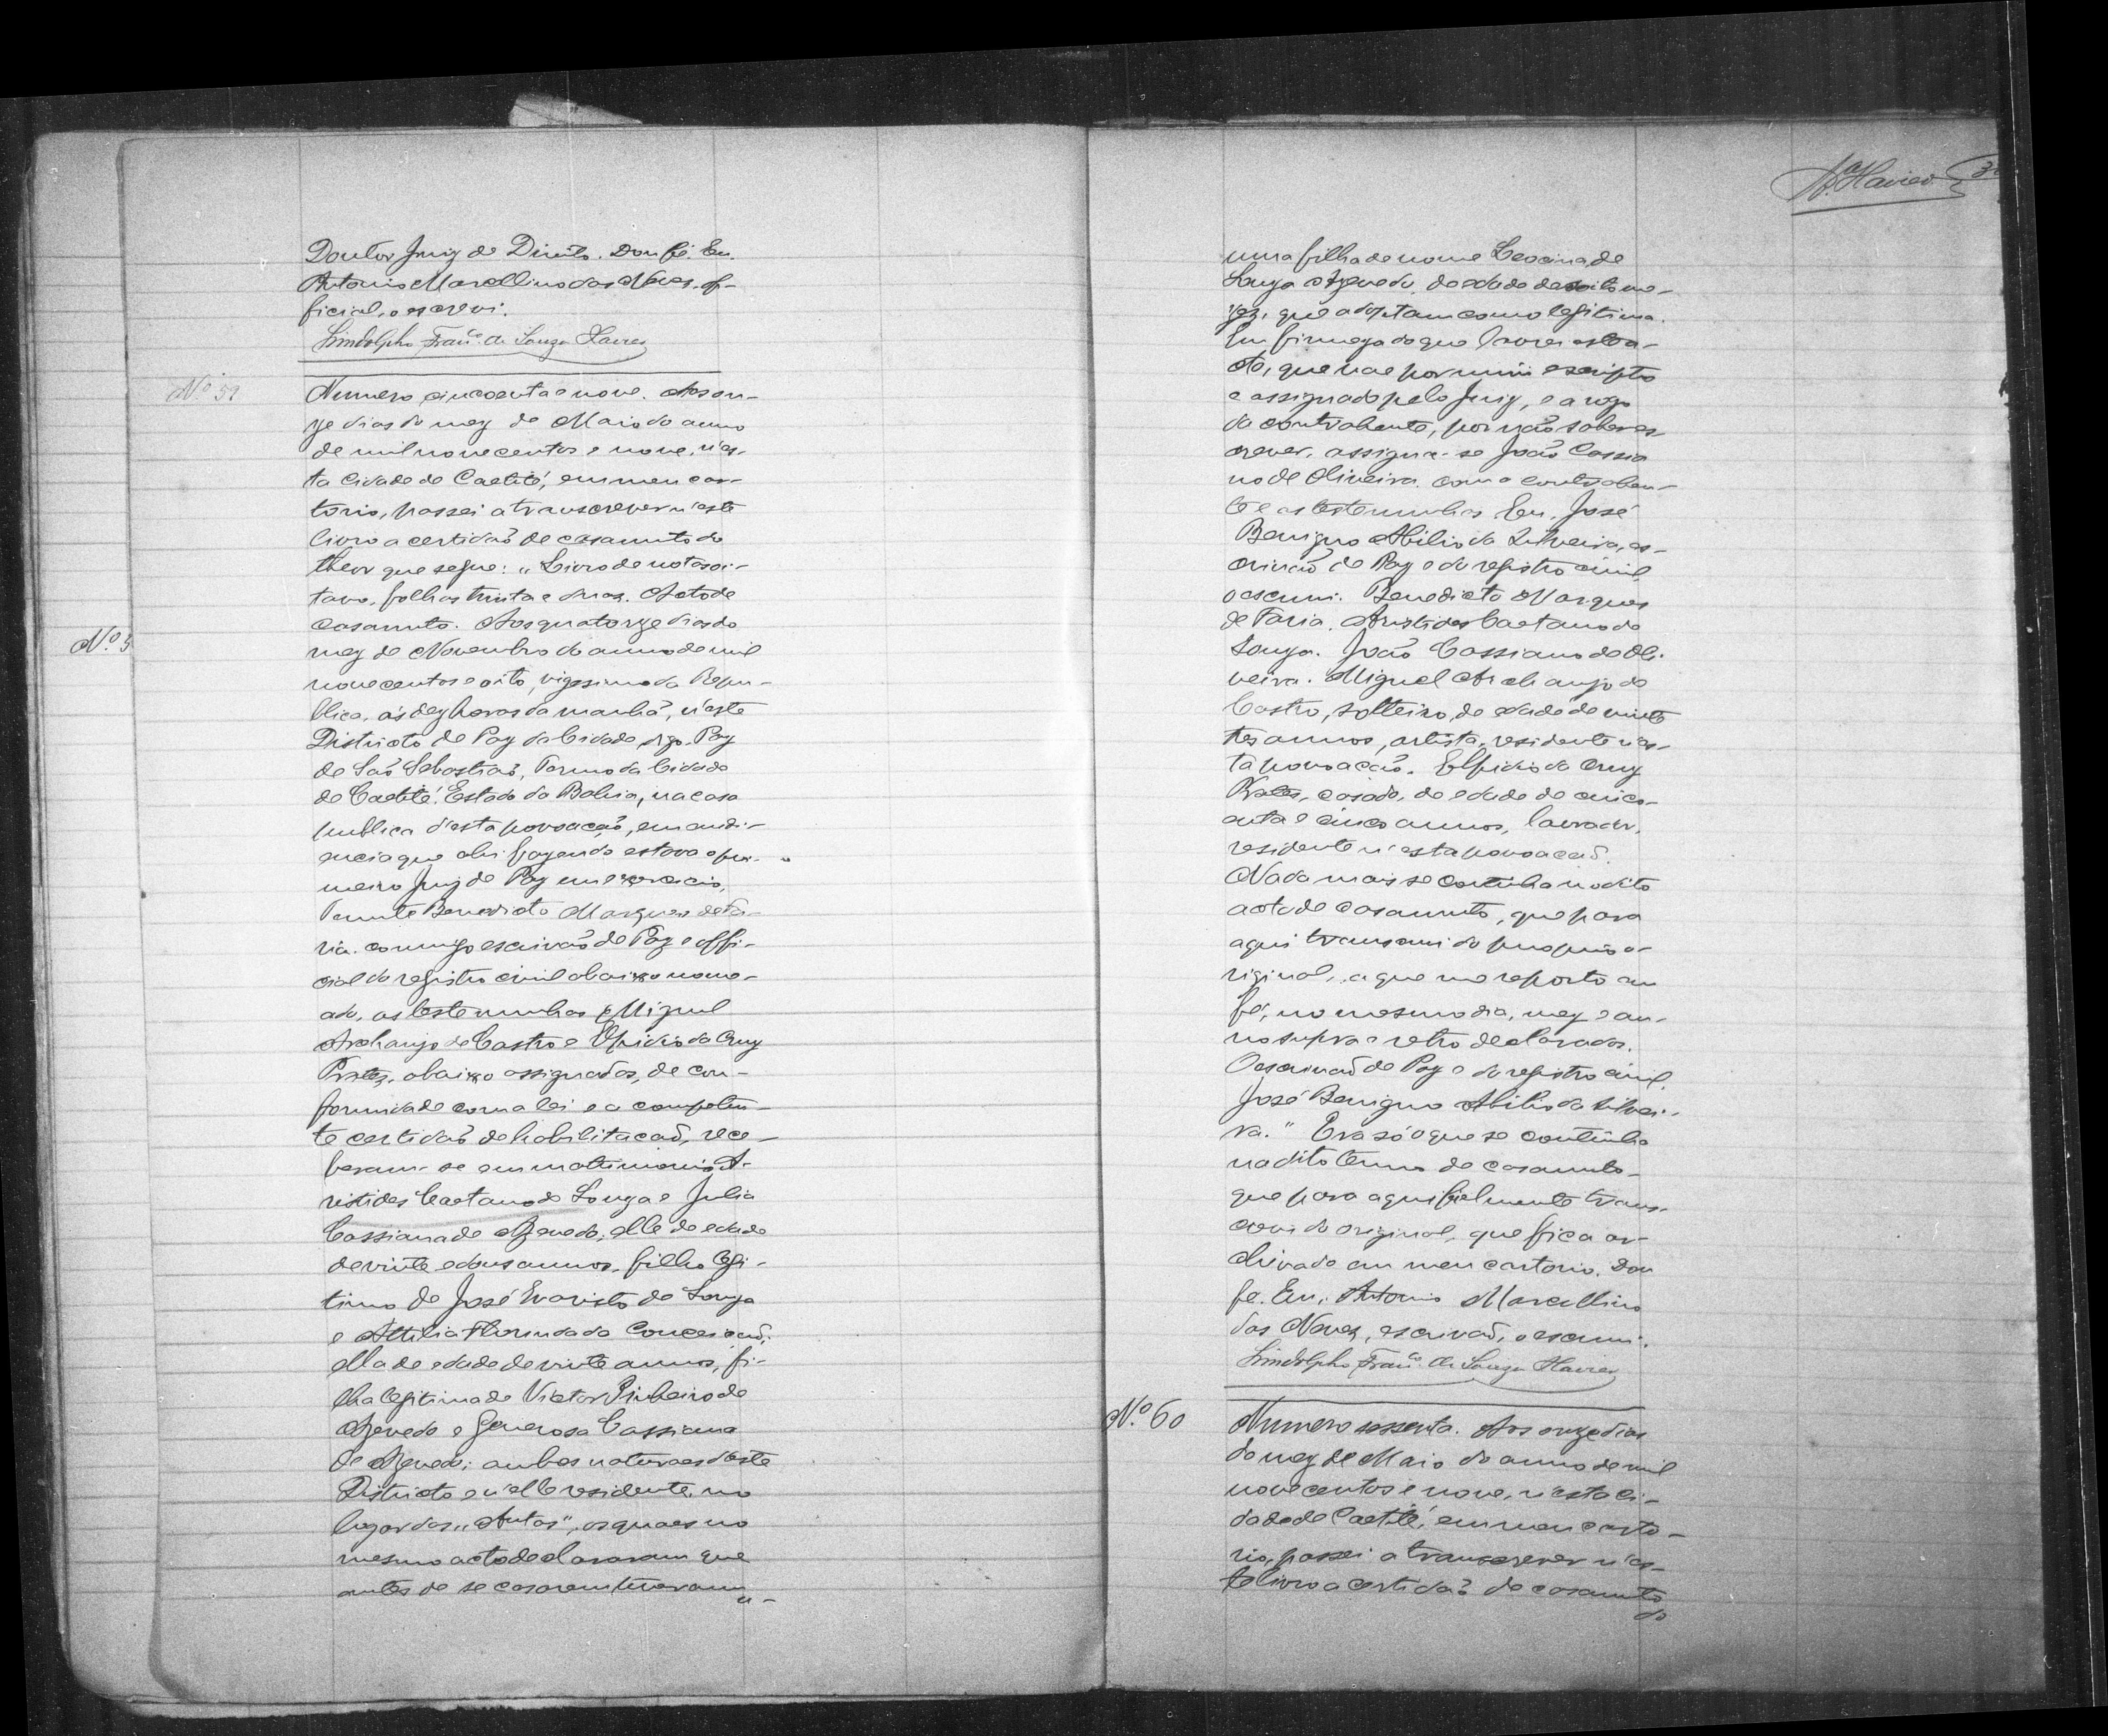 Doutor Juiz de Direito. Dou fé. Eu.
Antonio Marcellino das Neves, of-
ficial, o escrevi.
Lindolpho Franco. de Souza Xavier
Nº 59
Numero cincoenta e nove. Aos on-
ze dias do mez de Maio do anno
de mil novecentos e nove, n'es-
ta Cidade de Caetité, em meu car-
torio, passei a transcrever n'este
livro a certidão de casamento do
theor que segue: "Livro de notas oi-
tavo, folhas trinta e duas. Acto de
casamento. Aos quatorze dias do
mez de Novembro do anno de mil
novecentos e oito, vigesimo da Repu-
blica, ás dez horas da manhã, n'este
Districto de Paz da Cidade, digo. Paz
de São Sebastião, Termo da Cidade
de Caetité, Estado da Bahia, na casa
publica d'esta povoação, em audi-
encia que ahi fazendo estava o pri-
meiro Juiz de Paz em exercicio,
Tenente Benedicto Marques de Fa-
ria. comigo escrivão de Paz e offi-
cial do registro civil abaixo nome-
ado, as testemunhas Miguel
Archanjo de Castro e Elpidio da Cruz
Prates, abaixo assignados, de con-
formidade com a lei e a competen-
te certidão de habilitacão, rece-
beram-se em matrimonio A-
ristides Caetano de Souza e Julia
Cassiana de Azevedo; elle de edade
de vinte e dous annos, filho legi-
timo de José Evaristo de Souza
e Attilia Florinda da Conceicão;
ella de edade de vinte annos, fi-
lha legitima de Victor Pinheiro de
Azevedo e Generosa Cassiana
de Azevedo; ambos naturaes d'este
Districto e n'elle residente, no
lugar das "Antas", os quaes no
mesmo acto declararam que
antes de se casarem tiveram
u-
Nº 5
Xavier 3
uma filha de nome Leocina de
Souza Azevedo, de edade de oito me-
zes, que adoptam como legitima.
Em firmeza do que lavrei este a-
cto, que vae por mim escripto
e assignado pelo Juiz, e a rogo
da contrahente, por não saber es-
crever, assigna-se João Cassia
no de Oliveira com o contrahen-
te e as testemunhas. Eu, José
Benigno Abilio da Silveira, es-
crivão de Paz e do registro civil
o escrevi. Benedicto Marques
de Faria. Aristides Caetano de
Souza. João Cassiano de Oli-
veira. Miguel Archanjo de
Castro, solteiro, de edade de vinte
tres annos, artista, residente n'es-
ta povoacão. Elpidio da Cruz
Prates, casado, de edade de cinco-
enta e cinco annos, lavrador,
residente n'esta povoacão.
Nada mais se continha no dito
acto de casamento, que para
aqui transcrevi do proprio o-
riginal, a que me reporto em
fé, no mesmo dia, mez e an-
no supra e retro declarados.
O escrivão de Paz e do registro civil,
José Benigno Abilio da Silvei-
ra." Era só o que se continha
na dito termo de casamento
que para aqui fielmente trans-
crevi do original, que fica ar-
chivado em meu cartorio. Dou
fé. Eu, Antonio Marcellino
das Neves, escrivão, o escrevi.
Lindolpho Franco. de Souza Xavier
Nº 60
Numero sessenta. Aos onze dias
do mez de Maio do anno de mil
novecentos e nove, n'esta ci-
dade de Caetité, em meu carto-
rio, passei a transcrever n'es-
te livro a certidão de casamento
do